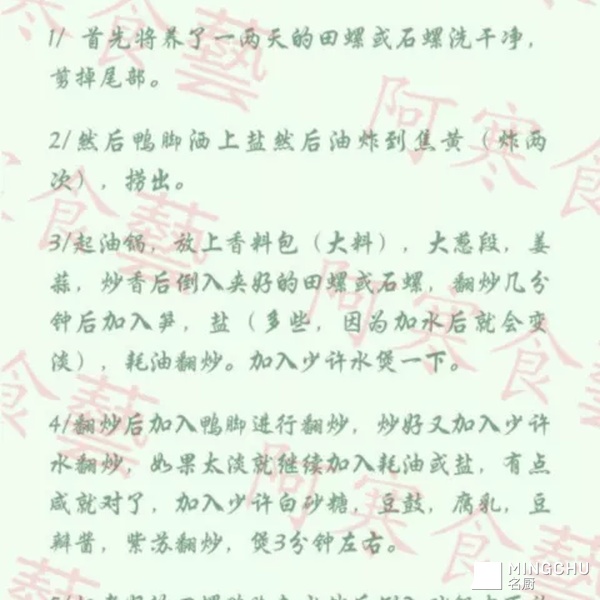 1/ 首先将养了一两天的田螺或石螺洗干净，
剪掉尾部。
2/然后鸭脚洒上盐然后油炸到焦黄（炸两
次），捞出。
3/起油锅，放上香料包（大料），大葱段，姜
蒜，炒香后倒入夹好的田螺或石螺，翻炒几分
钟后加入笋，盐（多些，因为加水后就会变
淡），耗油翻炒。加入少许水煲一下。
4/翻炒后加入鸭脚进行翻炒，炒好又加入少许
水翻炒，如果太淡就继续加入耗油或盐，有点
咸就对了，加入少许白砂糖，豆鼓，腐乳，豆
瓣酱，紫苏翻炒，煲3分钟左右。
阿寒食藝
阿寒食藝
阿寒食藝
MINGCHU
名厨